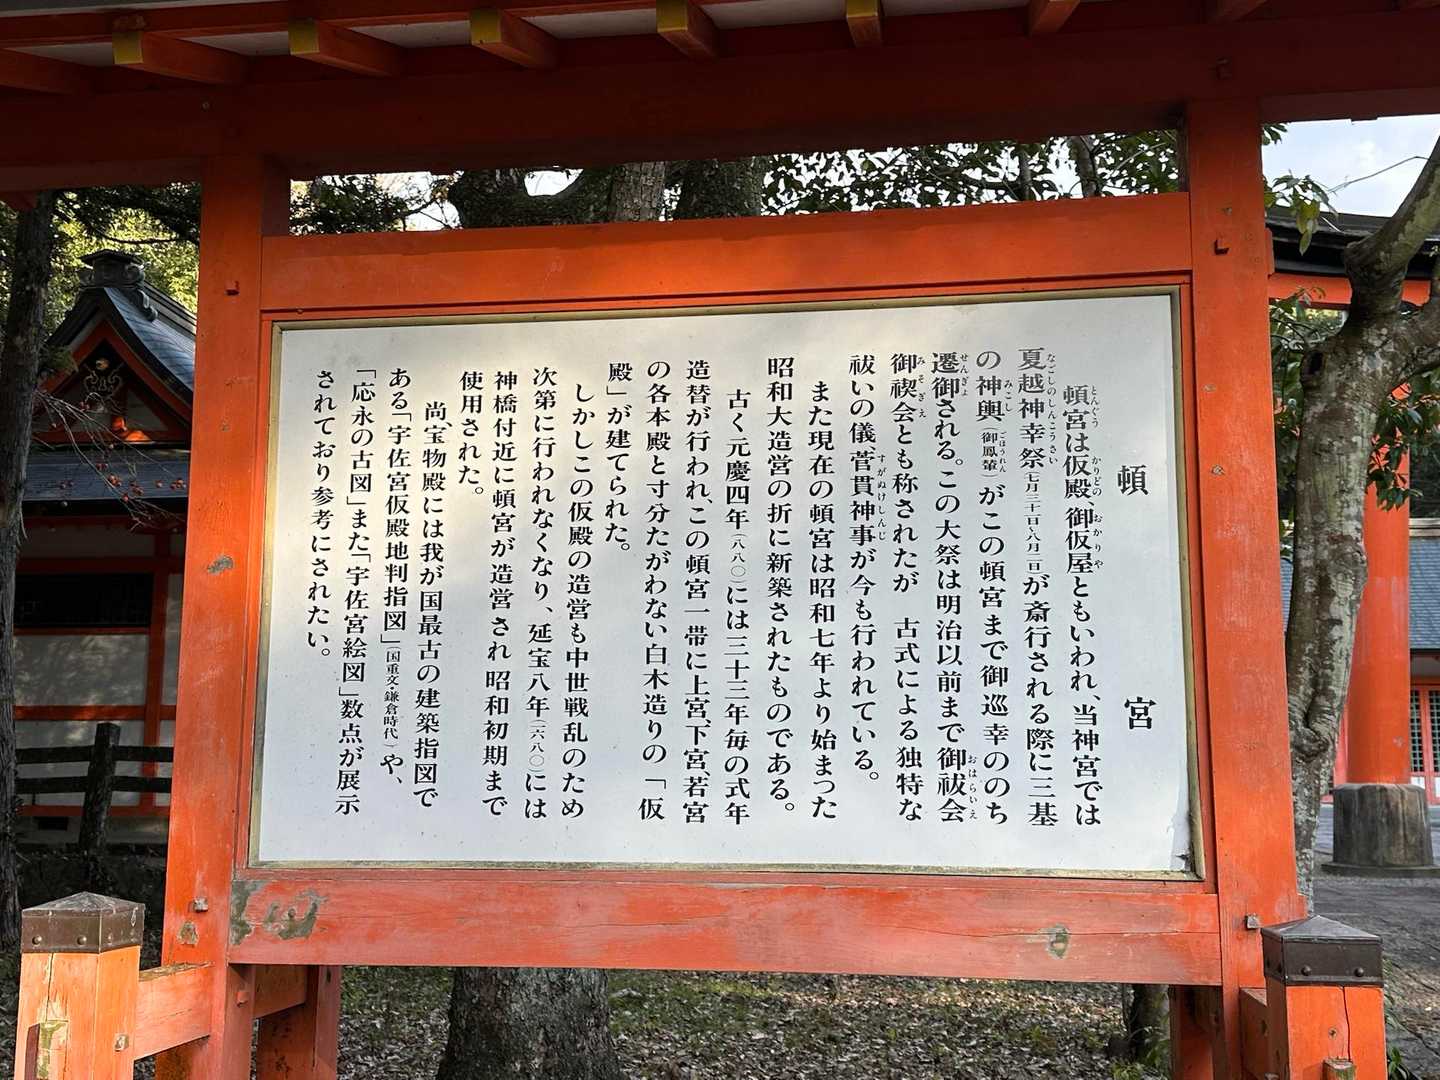 頓宮
頓宮は仮殿、御仮屋ともいわれ、当神宮では
とんぐう かりどの おかりや
夏越神幸祭(七月三十一日~八月二日)が斎行される際に三基
なごしのしんこうさい
の神輿(御鳳輦)がこの頓宮まで御巡幸ののち
みこし ごほうれん
遷御される。この大祭は明治以前まで御祓会
せんぎょ おはらいえ
御禊会とも称されたが 古式による独特な
みそぎえ
祓いの儀、菅貫神事が今も行われている。
すがぬけしんじ
また現在の頓宮は昭和七年より始まった
昭和大造営の折に新築されたものである。
古く元慶四年(八八〇)には三十三年毎の式年
造替が行われ、この頓宮一帯に上宮、下宮、若宮
の各本殿と寸分たがわない白木造りの「仮
殿」が建てられた。
しかしこの仮殿の造営も中世戦乱のため
次第に行われなくなり、延宝八年(一六八〇)には
神橋付近に頓宮が造営され 昭和初期まで
使用された。
尚、宝物殿には我が国最古の建築指図で
ある「宇佐宮仮殿地判指図」(国重文・鎌倉時代)や、
「応永の古図」また「宇佐宮絵図」数点が展示
されており参考にされたい。